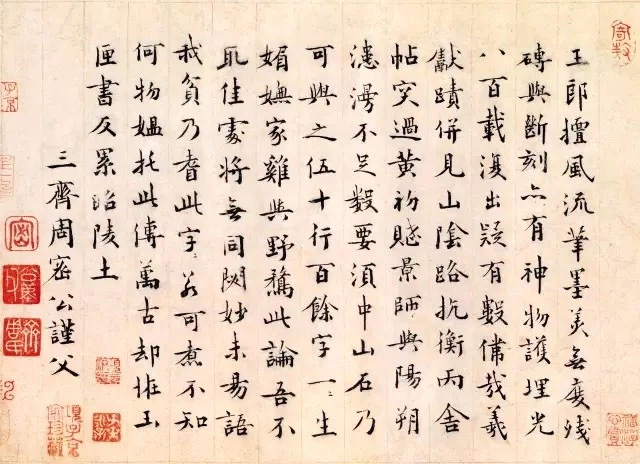 王郎擅風流筆墨美無度殘
磚與斷刻亦有神物護埋光
八百載復出疑有數俻哉羲
獻蹟併見山陰路抗衡兩舍
帖突過黄初賦景師與陽朔
漶漫不足數要須中山石乃
可與之伍十行百餘字一〻生
媚嫵家雞與野鶩此論吾不
取佳處將無同閟妙未易語
我貧乃耆此字若可煮不知
何物媼托此傳萬古却恠玉
匣書反累昭陵土
三齊周密公謹父